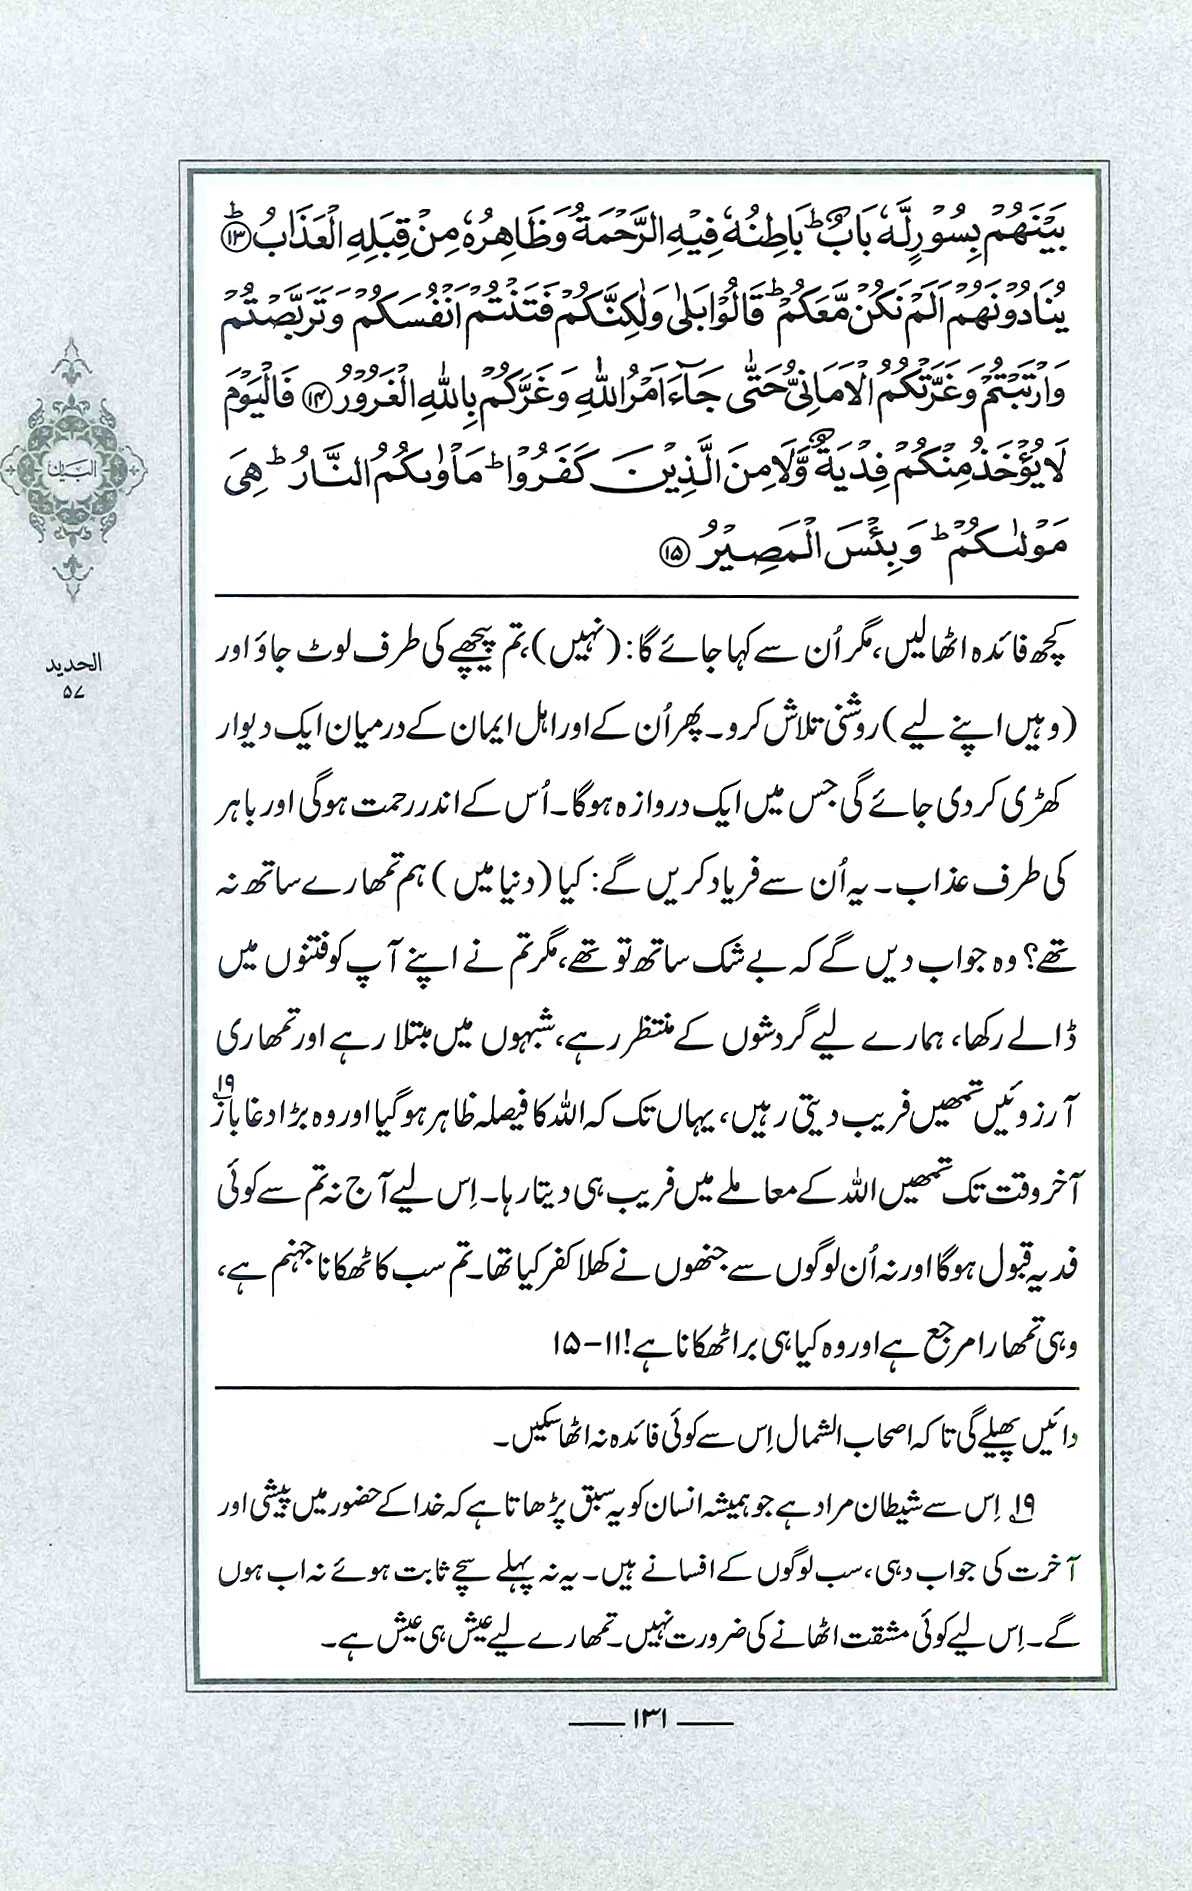 بَيۡنَهُمۡ بِسُوۡرٍ لَّهٗ بَابٌ ؕ بَاطِنُهٗ فِيۡهِ الرَّحۡمَةُ وَظَاهِرُهٗ مِنۡ قِبَلِهِ الۡعَذَابُ ﴿۱۳﴾ؕ
يُنَادُوۡنَهُمۡ اَلَمۡ نَكُنۡ مَّعَكُمۡ ؕ قَالُوۡا بَلٰى وَلٰكِنَّكُمۡ فَتَنۡتُمۡ اَنۡفُسَكُمۡ وَ تَرَبَّصۡتُمۡ
وَارۡتَبۡتُمۡ وَغَرَّتۡكُمُ الۡاَمَانِىُّ حَتّٰى جَآءَ اَمۡرُ اللّٰهِ وَ غَرَّكُمۡ بِاللّٰهِ الۡغَرُوۡرُ ﴿۱۴﴾ فَالۡيَوۡمَ
لَا يُؤۡخَذُ مِنۡكُمۡ فِدۡيَةٌ وَّلَا مِنَ الَّذِيۡنَ كَفَرُوۡا ؕ مَاۡوٰٮكُمُ النَّارُ ؕ هِىَ
مَوۡلٰٮكُمۡ ؕ وَ بِئۡسَ الۡمَصِيۡرُ ﴿۱۵﴾
کچھ فائدہ اٹھا لیں، مگر اُن سے کہا جائے گا: (نہیں)، تم پیچھے کی طرف لوٹ جاؤ اور
(وہیں اپنے لیے) روشنی تلاش کرو۔ پھر اُن کے اور اہل ایمان کے درمیان ایک دیوار
کھڑی کر دی جائے گی جس میں ایک دروازہ ہوگا۔ اُس کے اندر رحمت ہوگی اور باہر
کی طرف عذاب۔ یہ اُن سے فریاد کریں گے: کیا (دنیا میں) ہم تمھارے ساتھ نہ
تھے؟ وہ جواب دیں گے کہ بے شک ساتھ تو تھے، مگر تم نے اپنے آپ کو فتنوں میں
ڈالے رکھا، ہمارے لیے گردشوں کے منتظر رہے، شبہوں میں مبتلا رہے اور تمھاری
آرزوئیں تمھیں فریب دیتی رہیں، یہاں تک کہ اللہ کا فیصلہ ظاہر ہو گیا اور وہ بڑا دغا باز۱۹
آخر وقت تک تمھیں اللہ کے معاملے میں فریب ہی دیتا رہا۔ اِس لیے آج نہ تم سے کوئی
فدیہ قبول ہوگا اور نہ اُن لوگوں سے جنھوں نے کھلا کفر کیا تھا۔ تم سب کا ٹھکانا جہنم ہے،
وہی تمھارا مرجع ہے اور وہ کیا ہی برا ٹھکانا ہے! ۱۱-۱۵
دائیں پھیلے گی تاکہ اصحاب الشمال اِس سے کوئی فائدہ نہ اٹھا سکیں۔
۱۹؂ اِس سے شیطان مراد ہے جو ہمیشہ انسان کو یہ سبق پڑھاتا ہے کہ خدا کے حضور میں پیشی اور
آخرت کی جواب دہی، سب لوگوں کے افسانے ہیں۔ یہ نہ پہلے سچے ثابت ہوئے نہ اب ہوں
گے۔ اِس لیے کوئی مشقت اٹھانے کی ضرورت نہیں۔ تمھارے لیے عیش ہی عیش ہے۔
البیان
الحدید
۵۷
۱۳۱